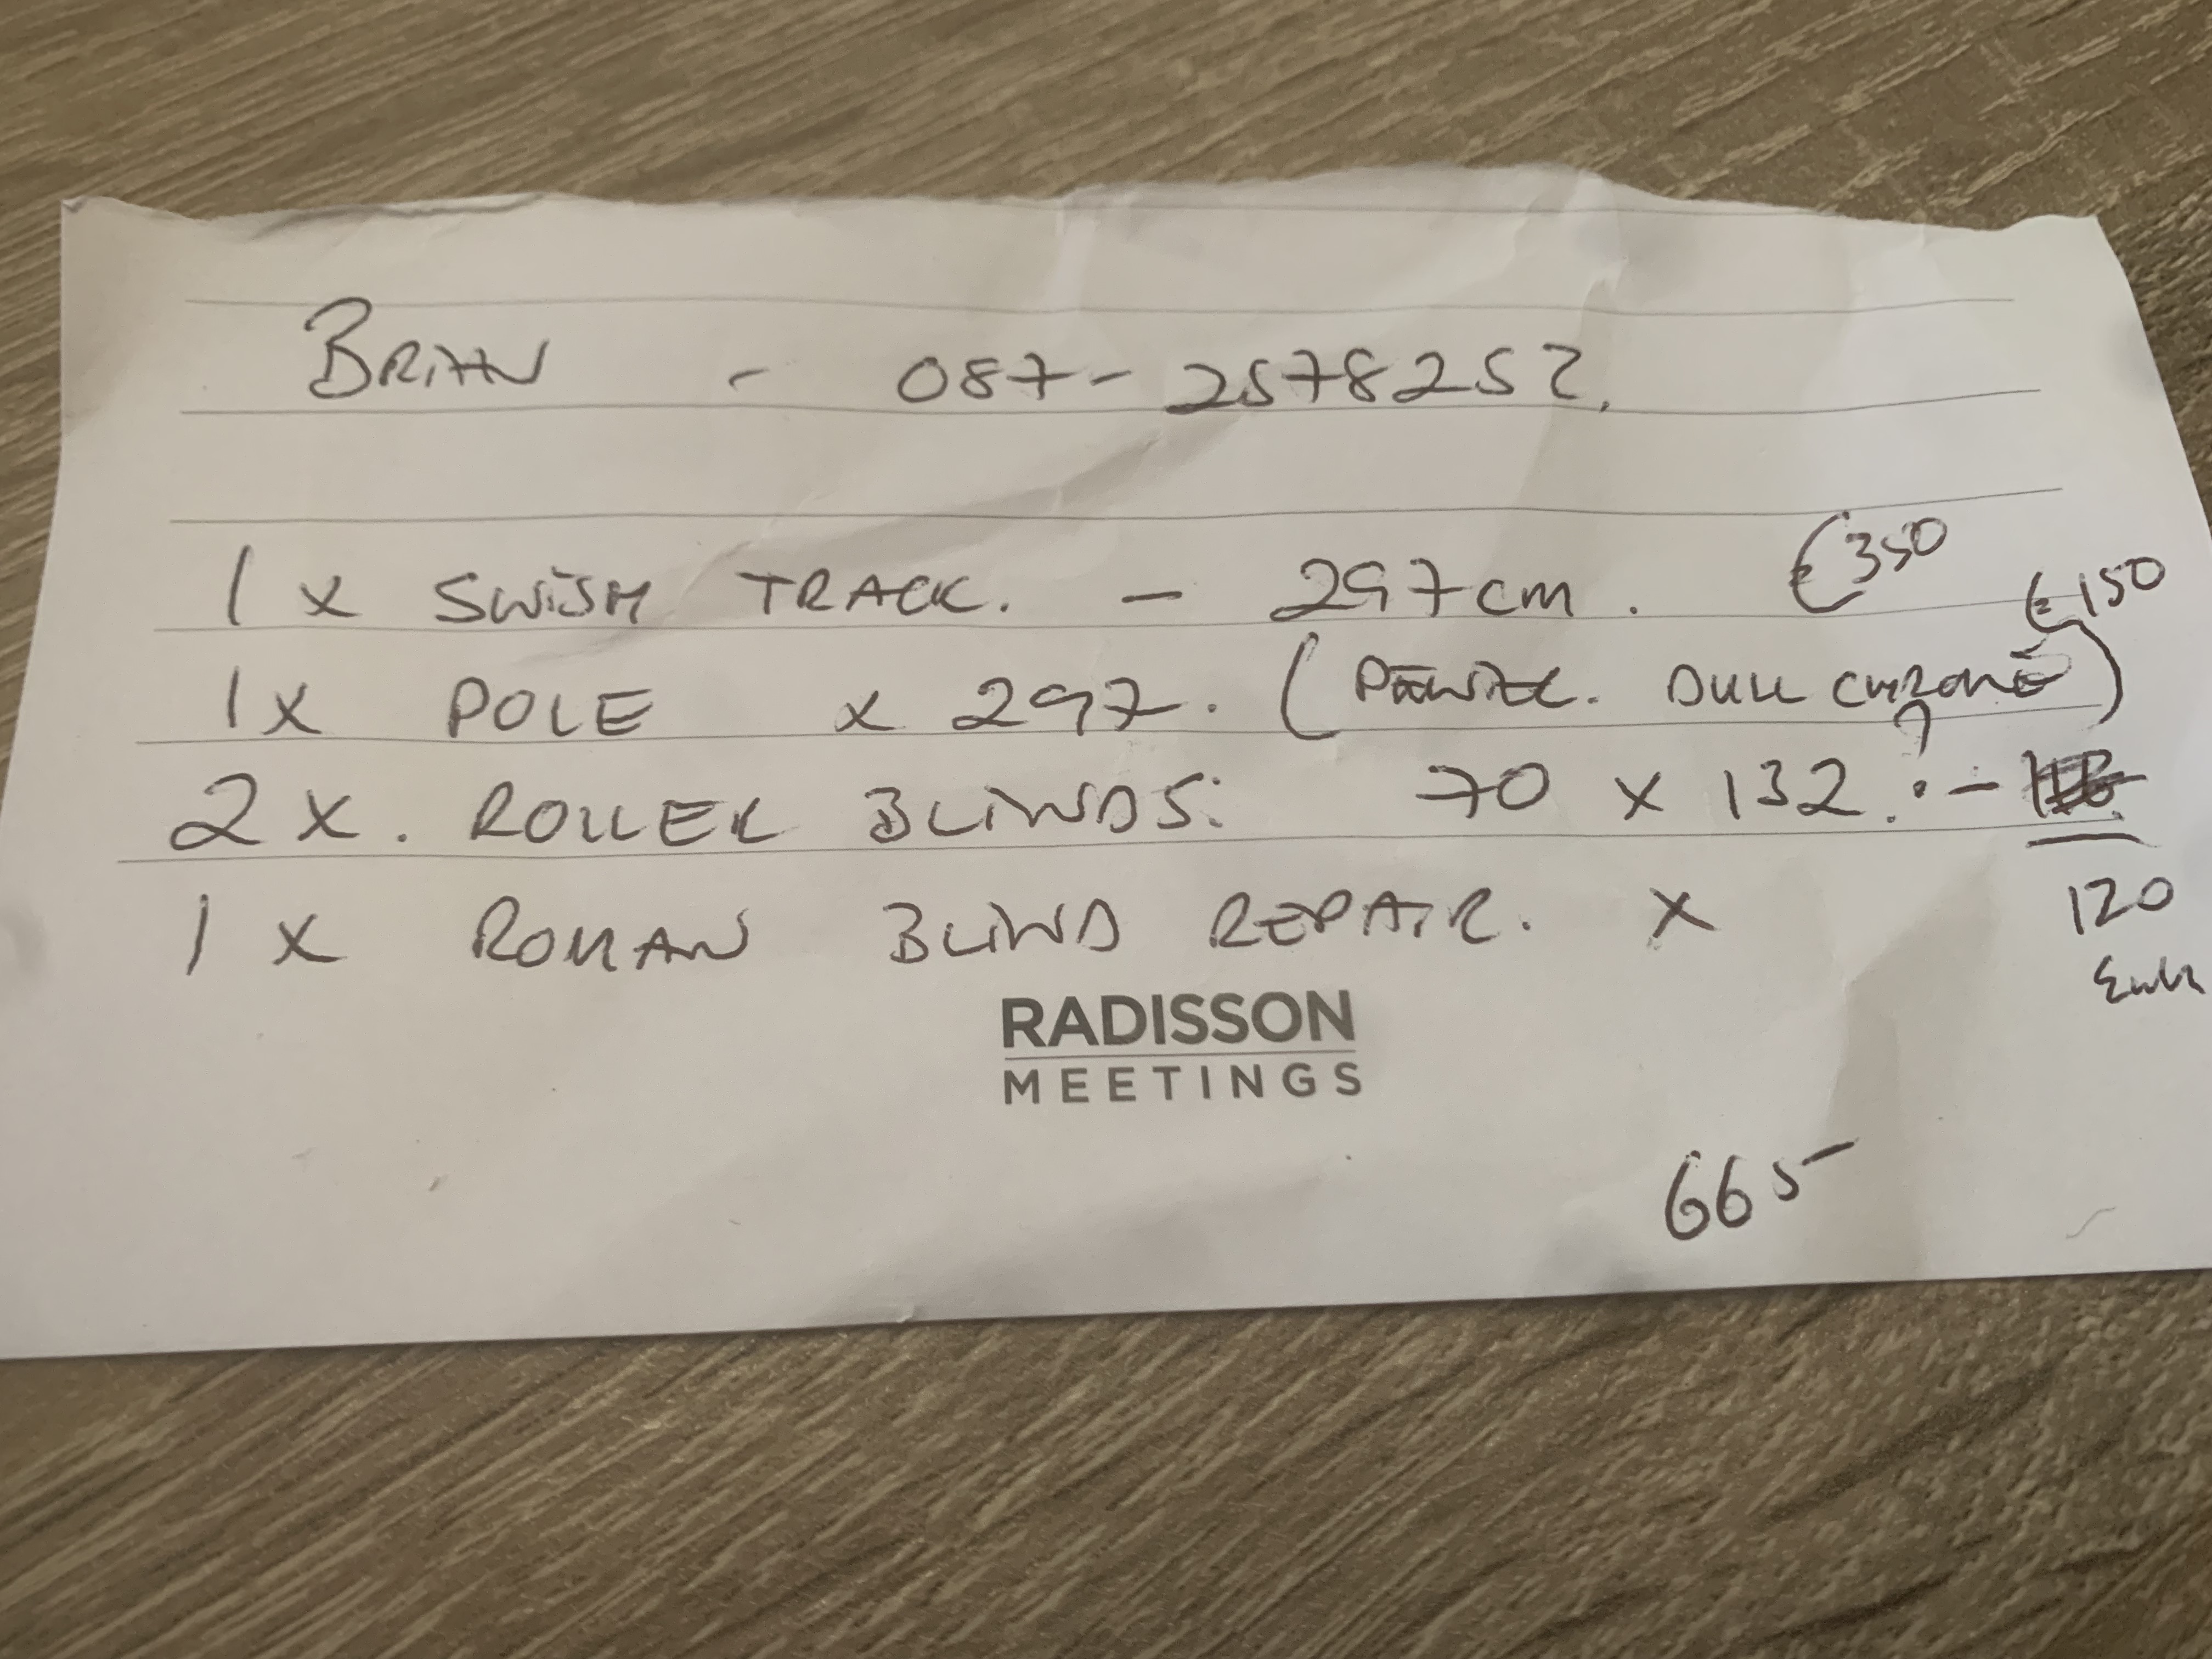 BRIAN - 087-2578252.
1 x SWISH TRACK. - 297cm. €350
€150
1 x POLE x 297. (PEWTER. DULL CHROME)
2 x. ROLLER BLINDS: 70 x 132?. -
120
1 x ROMAN BLIND REPAIR. x
RADISSON
MEETINGS
665